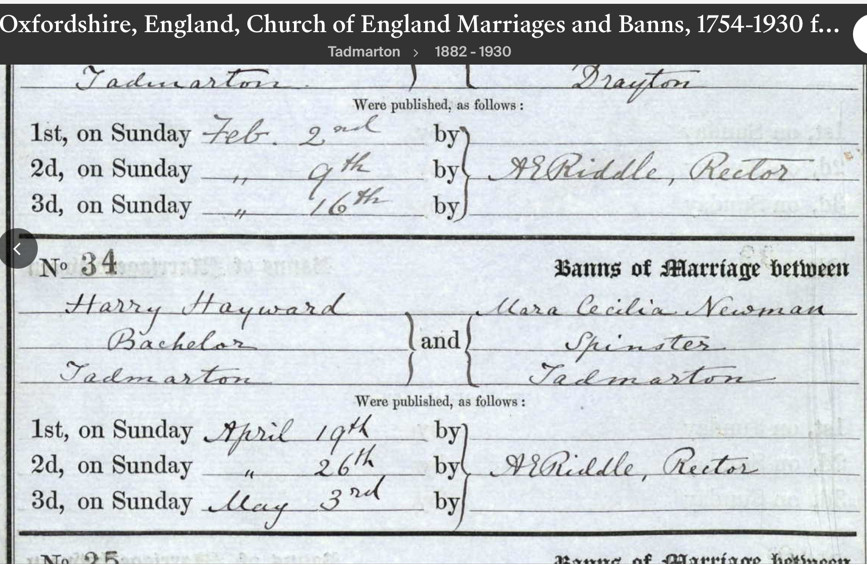 Oxfordshire, England, Church of England Marriages and Banns, 1754-1930 f...
Tadmarton > 1882-1930
Tadmarton Drayton
Were published, as follows:
1st, on Sunday Feb. 2nd by
2d, on Sunday " 9th by AERiddle, Rector
3d, on Sunday " 16th by
No 34 Banns of Marriage between
Harry Hayward Mara Cecilia Newman
Bachelor and Spinster
Tadmarton Tadmarton
Were published, as follows:
1st, on Sunday April 19th by
2d, on Sunday " 26th by AERiddle, Rector
3d, on Sunday May 3rd by
No 35 Banns of Marriage between